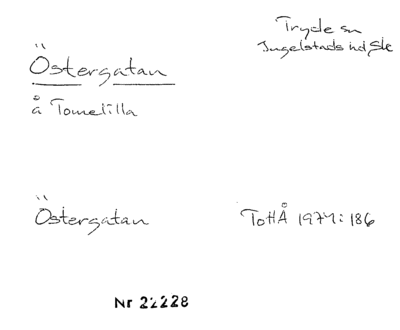 Östergatan
å Tomelilla
Tryde sn
Ingelstads hd Skå
Östergatan
ToHÅ 1974:186
Nr 22228